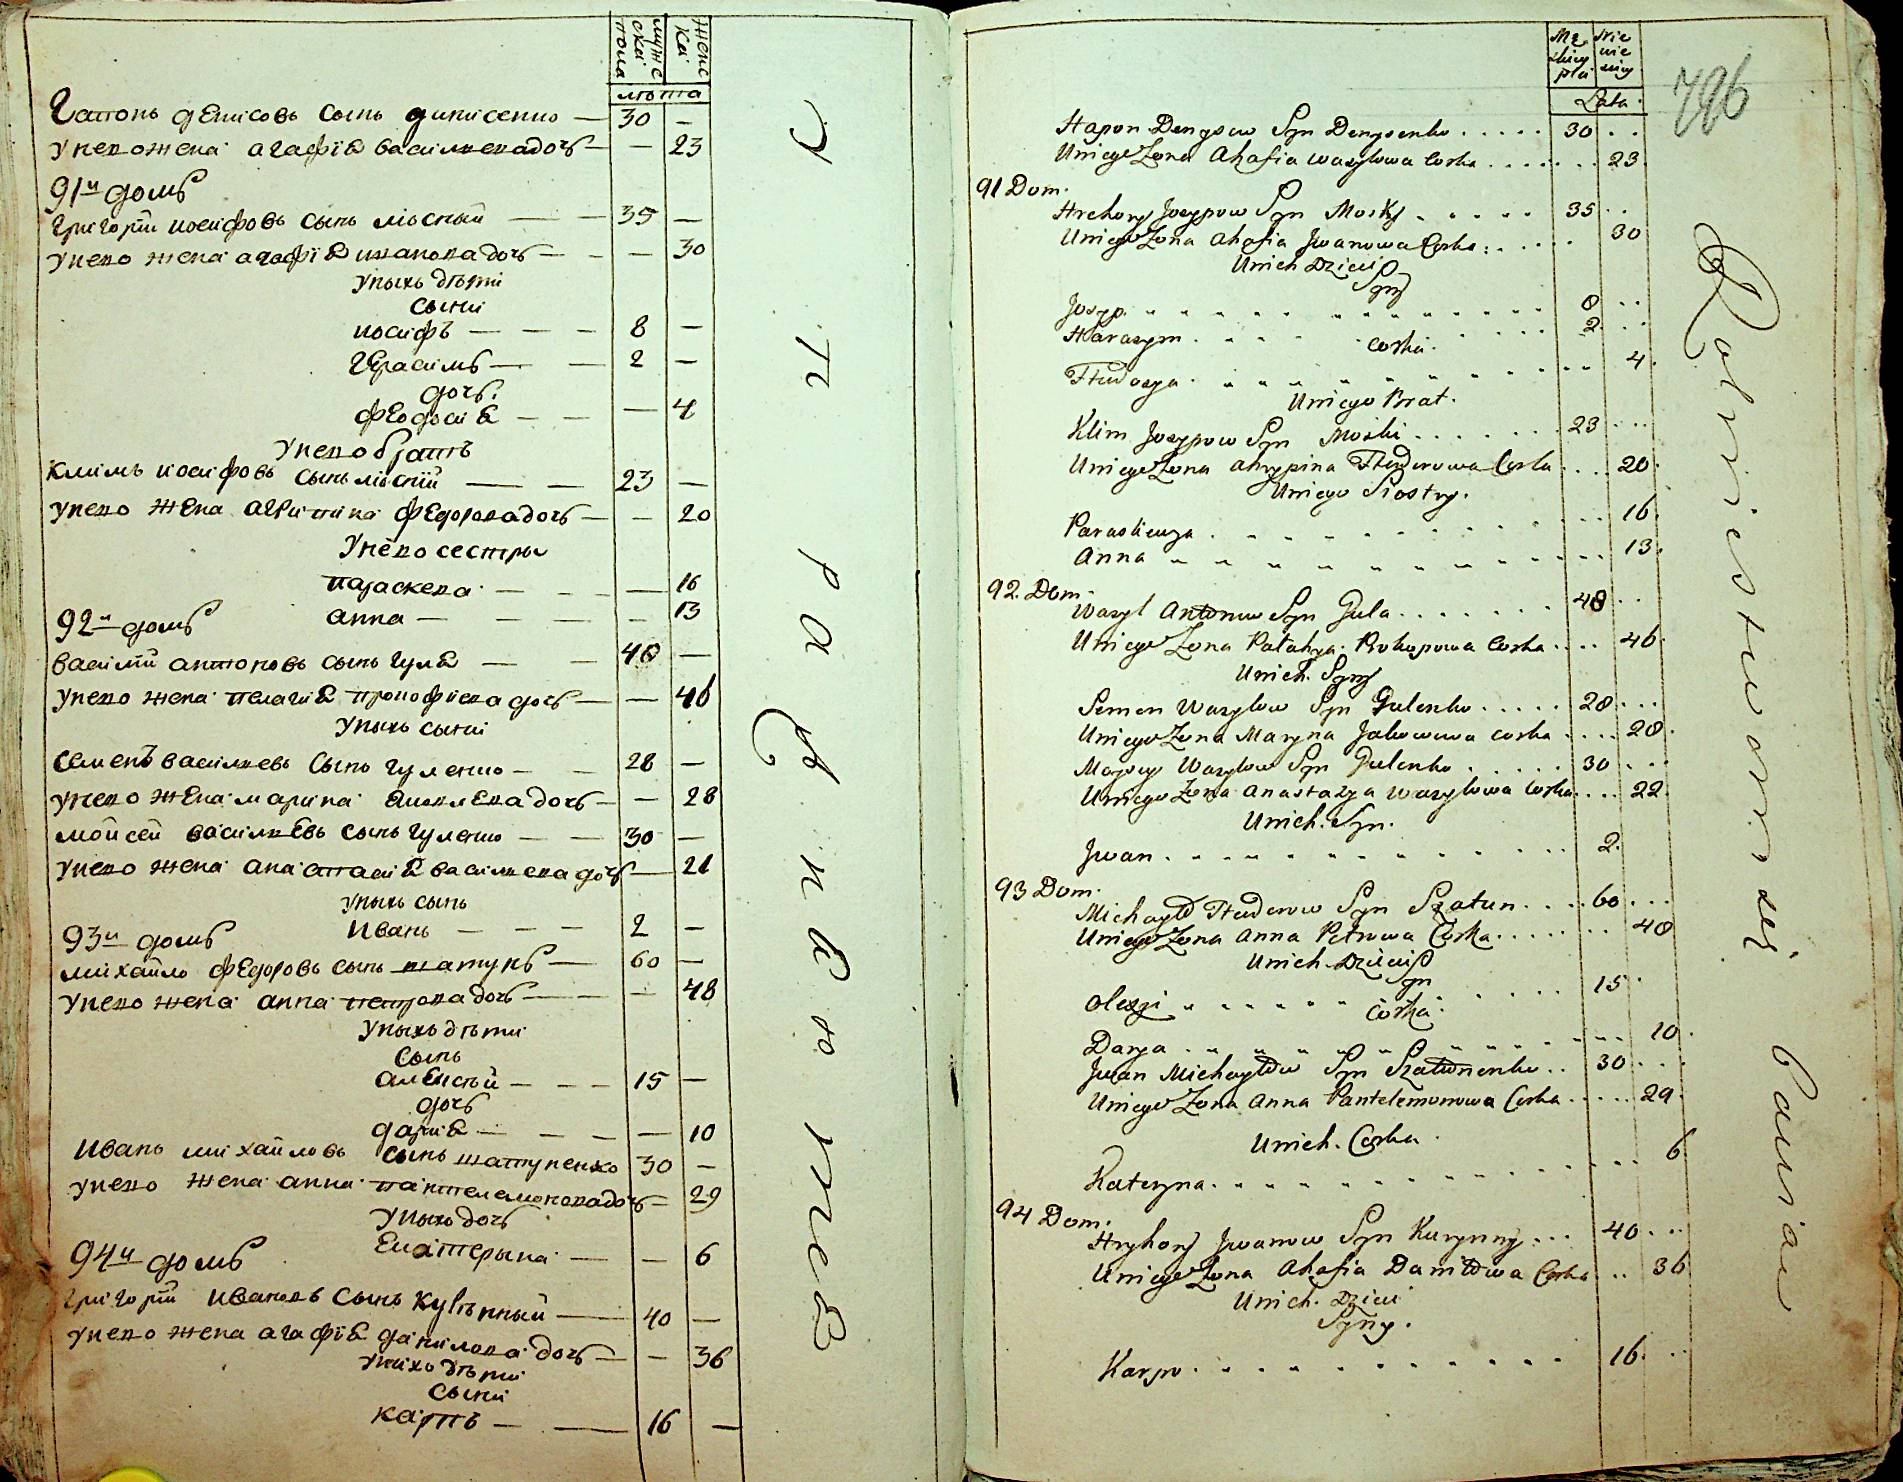 мужс
ской
пола
женс
кой
лѣта
Гапонъ денисовъ сынъ динисенко — 30 —
унево жена агафия василиева дочь — — 23
91й домъ
григорій иосифовъ сынъ міоский — — 35 —
унево жена агафия иванова дочь — — — 30
унихъ дѣти
сыни
иосифъ — — — 8 —
Герасимъ — — 2 —
дочь.
феодосия — — — 4
унево братъ
климъ иосифовъ сынъ міоский — — 23 —
унево жена агрипина федорова дочь — — 20
унево сестры
параскева — — — — 16
92й домъ
анна — — — — — 13
василий антоновъ сынъ гуля — — 48 —
унево жена пелагия прокофиева дочь — — 46
унихъ сыни
семенъ василиевъ сынъ гуленко — — 28 —
унево жена марина яковлева дочь — — 28
мойсей василиевъ сынъ гуленко — — 30 —
унево жена анастасия василиева дочь — 21
унихъ сынъ
93й домъ
иванъ — — — 2 —
михайло федоровъ сынъ шатунъ — 60 —
унево жена анна петрова дочь — — — 48
унихъ дѣти
сынъ
алексей — — — 15 —
дочь
дария — — — — — 10
иванъ михайловъ сынъ шатуненко 30 —
унево жена анна пантелемонова дочь — 29
унихъ дочь
94й домъ
Екатерына — — 6
григорий ивановъ сынъ курѣнный — 40 —
унево жена агафия данилова дочь — — 36
унихъ дѣти
сыни
карпъ — — 16 —
Mę
skiey
płci
Nie
wie
sciey
Lata.
796
Hapon Denysow Syn Denysenko . . . . . 30 . .
Uniego Zona Ahafia Wasylowa Corka . . . . . . . 23
91 Dom.
Hrehory Josypow Syn Moski . . . . . 35 . .
Uniego Zona Ahafia Jwanowa Corka . . . . . 30
Unich Dzieci
Syny
Josyp . . . . . . . . . . . . 8 . .
Harasym . . . . . . . . 2 . .
Corka.
Thedosya . . . . . . . . . . . 4.
Uniego Brat.
Klim Josypow Syn Moski . . . . . . 23 . . .
Uniego Zona Ahrypina Thedorowa Corka . . . . 20.
Uniego Siostry.
Paraskewya . . . . . . . . . . . 16.
Anna . . . . . . . . . . . . 13.
92. Dom.
Wasyl Antonow Syn Gula . . . . . . 48 . .
Uniego Zona Palahya Prokopowa Corka . . . . 46.
Unich. Syny
Semen Wasylow Syn Gulenko . . . . . 28 . . .
Uniego Zona Maryna Jakowowa Corka . . . . 28.
Mojsey Wasylow Syn Gulenko . . . . . 30 . . .
Uniego Zona Anastazya Wasylowa Corka . . . . 22.
Unich. Syn.
Jwan . . . . . . . . . . . . 2.
93 Dom.
Michayło Thedorow Syn Szatun . . . . 60 . . .
Uniego Zona Anna Petrowa Corka . . . . . . . 48
Unich Dzieci
Syn
Olexyi . . . . . . . . . . 15.
Corka.
Darya . . . . . . . . . . . . 10.
Jwan Michayłow Syn Szatunenko . . 30 . . .
Uniego Zona Anna Pantelemonowa Corka . . . . . 29.
Unich. Corka.
Kateryna . . . . . . . . . . . . 6
94 Dom.
Hryhory Jwanow Syn Kurynny . . . 40 . . .
Uniego Zona Ahafia Daniłowa Corka . . 36
Unich. Dzieci
Syny.
Karpo . . . . . . . . . . . . 16 . . .